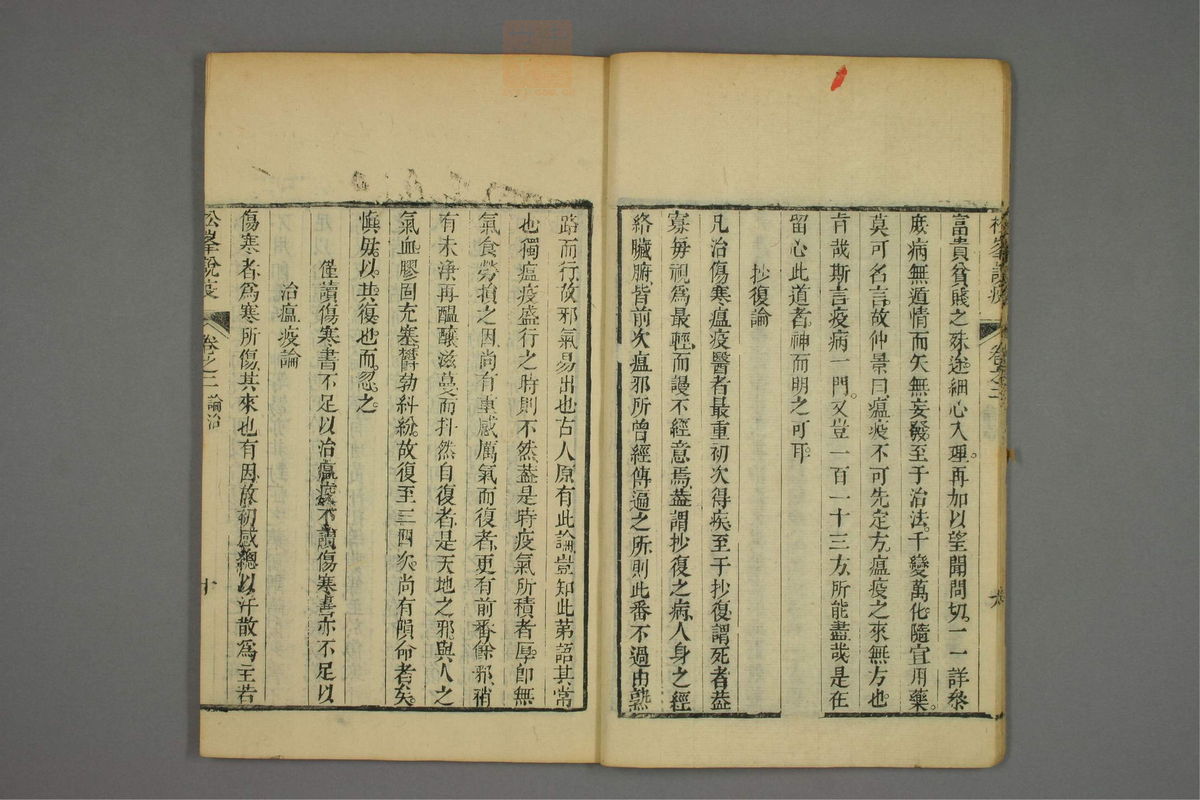 富貴貧賤之殊途細心入理再加以望聞問切一一詳參
庶病無遁情而矢無妄發至于治法千變萬化隨宜用藥
莫可名言故仲景曰瘟疫不可先定方瘟疫之來無方也
旨哉斯言疫病一門又豈一百一十三方所能盡哉是在
留心此道者神而明之可耳
抄復論
凡治傷寒瘟疫醫者最重初次得疾至于抄復謂死者蓋
寡每視為最輕而謾不經意焉蓋謂抄復之病人身之經
絡臟腑皆前次瘟邪所曾經傳遍之所則此番不過由熟
路而行故邪氣易出也古人原有此論豈知此第語其常
也獨瘟疫盛行之時則不然蓋是時疫氣所積者厚即無
氣食勞損之因尚有重感厲氣而復者更有前番餘邪稍
有未淨再醞釀滋蔓而抖然自復者是天地之邪與人之
氣血膠固充塞鬱勃糾紛故復至三四次尚有隕命者矣
慎毋以其復也而忽之
僅讀傷寒書不足以治瘟疫不讀傷寒書亦不足以
治瘟疫論
傷寒者為寒所傷其來也有因故初感總以汗散為主若
松峯說疫 卷之二 論治 十